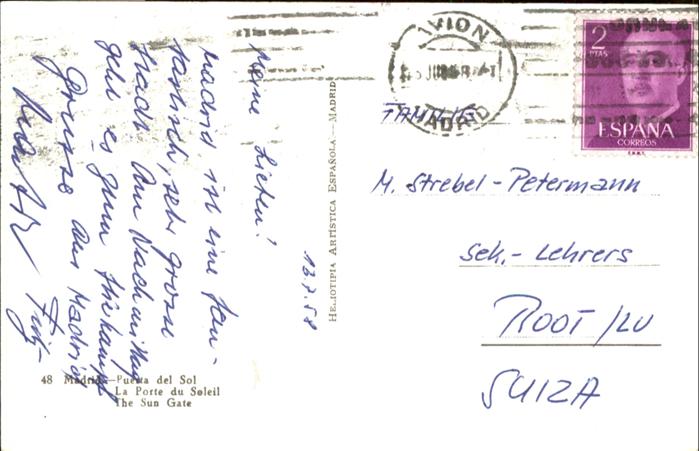 Meine Lieben!
Madrid ist eine fan-
tastisch, sehr grosse
Stadt. Am Nachmittag
geht es zum Stierkampf
Grüsse aus Madrid
Fritz
13.7.58
48 Madrid.—Puerta del Sol
La Porte du Soleil
The Sun Gate
HELIOTIPIA ARTÍSTICA ESPAÑOLA.—MADRID
AVION
MADRID
2
PTAS
ESPAÑA
CORREOS
FAMILIE
M. Strebel-Petermann
Sek.-Lehrers
ROOT/LU
SUIZA